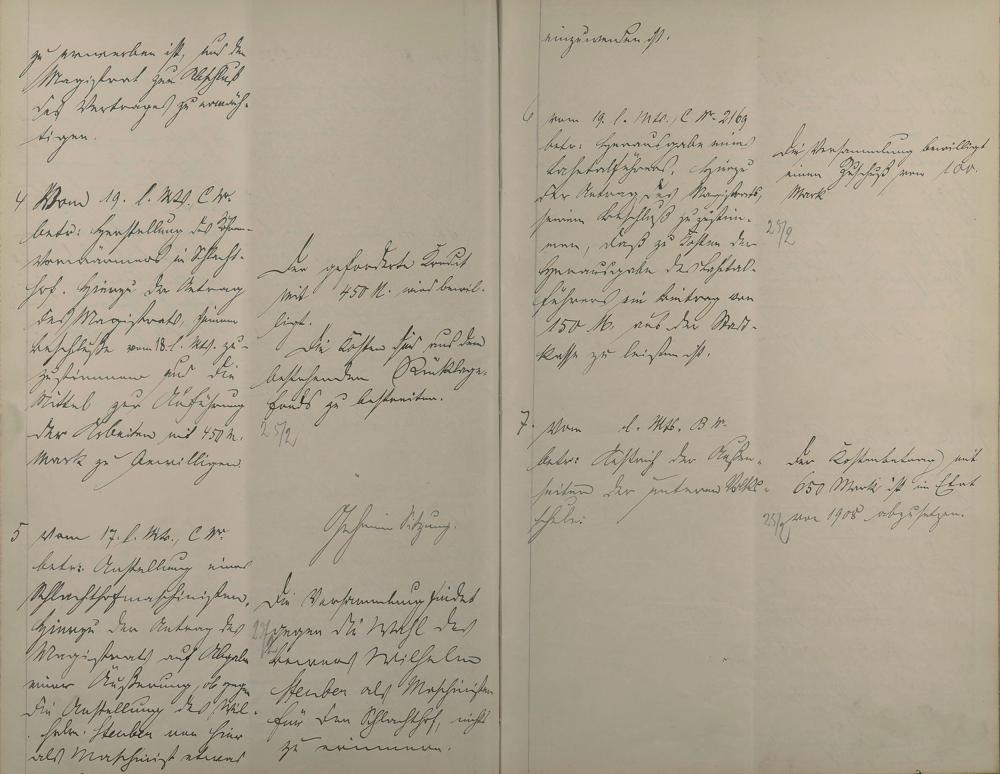 zu erwerben ist, und den
Magistrat zum Abschluß
des Vertrages zu ermäch-
tigen.
4 Vom 19. l. Mts. C Nr.
betr: Herstellung des
Vorwärmers im Schlacht-
hof. Hierzu der Antrag
des Magistrats, seinem
Beschlusse vom 18. l. Mts. zu-
zustimmen und die
Mittel zur Ausführung
der Arbeiten mit 450 M.
Mark zu bewilligen.
Der geforderte Kredit
mit 450 M. wird bewil-
ligt.
Die Kosten sind aus dem
bestehenden Rücklage-
fonds zu bestreiten.
25/2
5 Vom 17. l. Mts., C Nr.
betr: Anstellung eines
Schlachthofmaschinisten.
Hierzu der Antrag des
Magistrats auf Abgabe
einer Äußerung, ob gegen
die Anstellung des Wil-
helm Steuben von hier
als Maschinist etwas
Geheime Sitzung.
Die Versammlung findet
gegen die Wahl des
Wilhelm
Steuben als Maschinisten
für den Schlachthof, nichts
zu erinnern.
einzuwenden ist.
6 vom 19. l. Mts., C Nr. 2169
betr: Herausgabe eines
Lahntalführers. Hierzu
der Antrag des Magistrats,
seinem Beschluß zuzustim-
men, daß zu Kosten der
Herausgabe des Lahntal-
führers ein Beitrag von
150 M. aus der Stadt-
kasse zu leisten ist.
Die Versammlung bewilligt
einen Zuschuß von 100.
Mark
25/2
7. Vom l. Mts. B Nr.
betr: Anstrich der Außen-
seiten der unteren Volks-
schule:
Der Kostenbetrag mit
650 Mark ist im Etat
25/2 von 1908 abzusetzen.